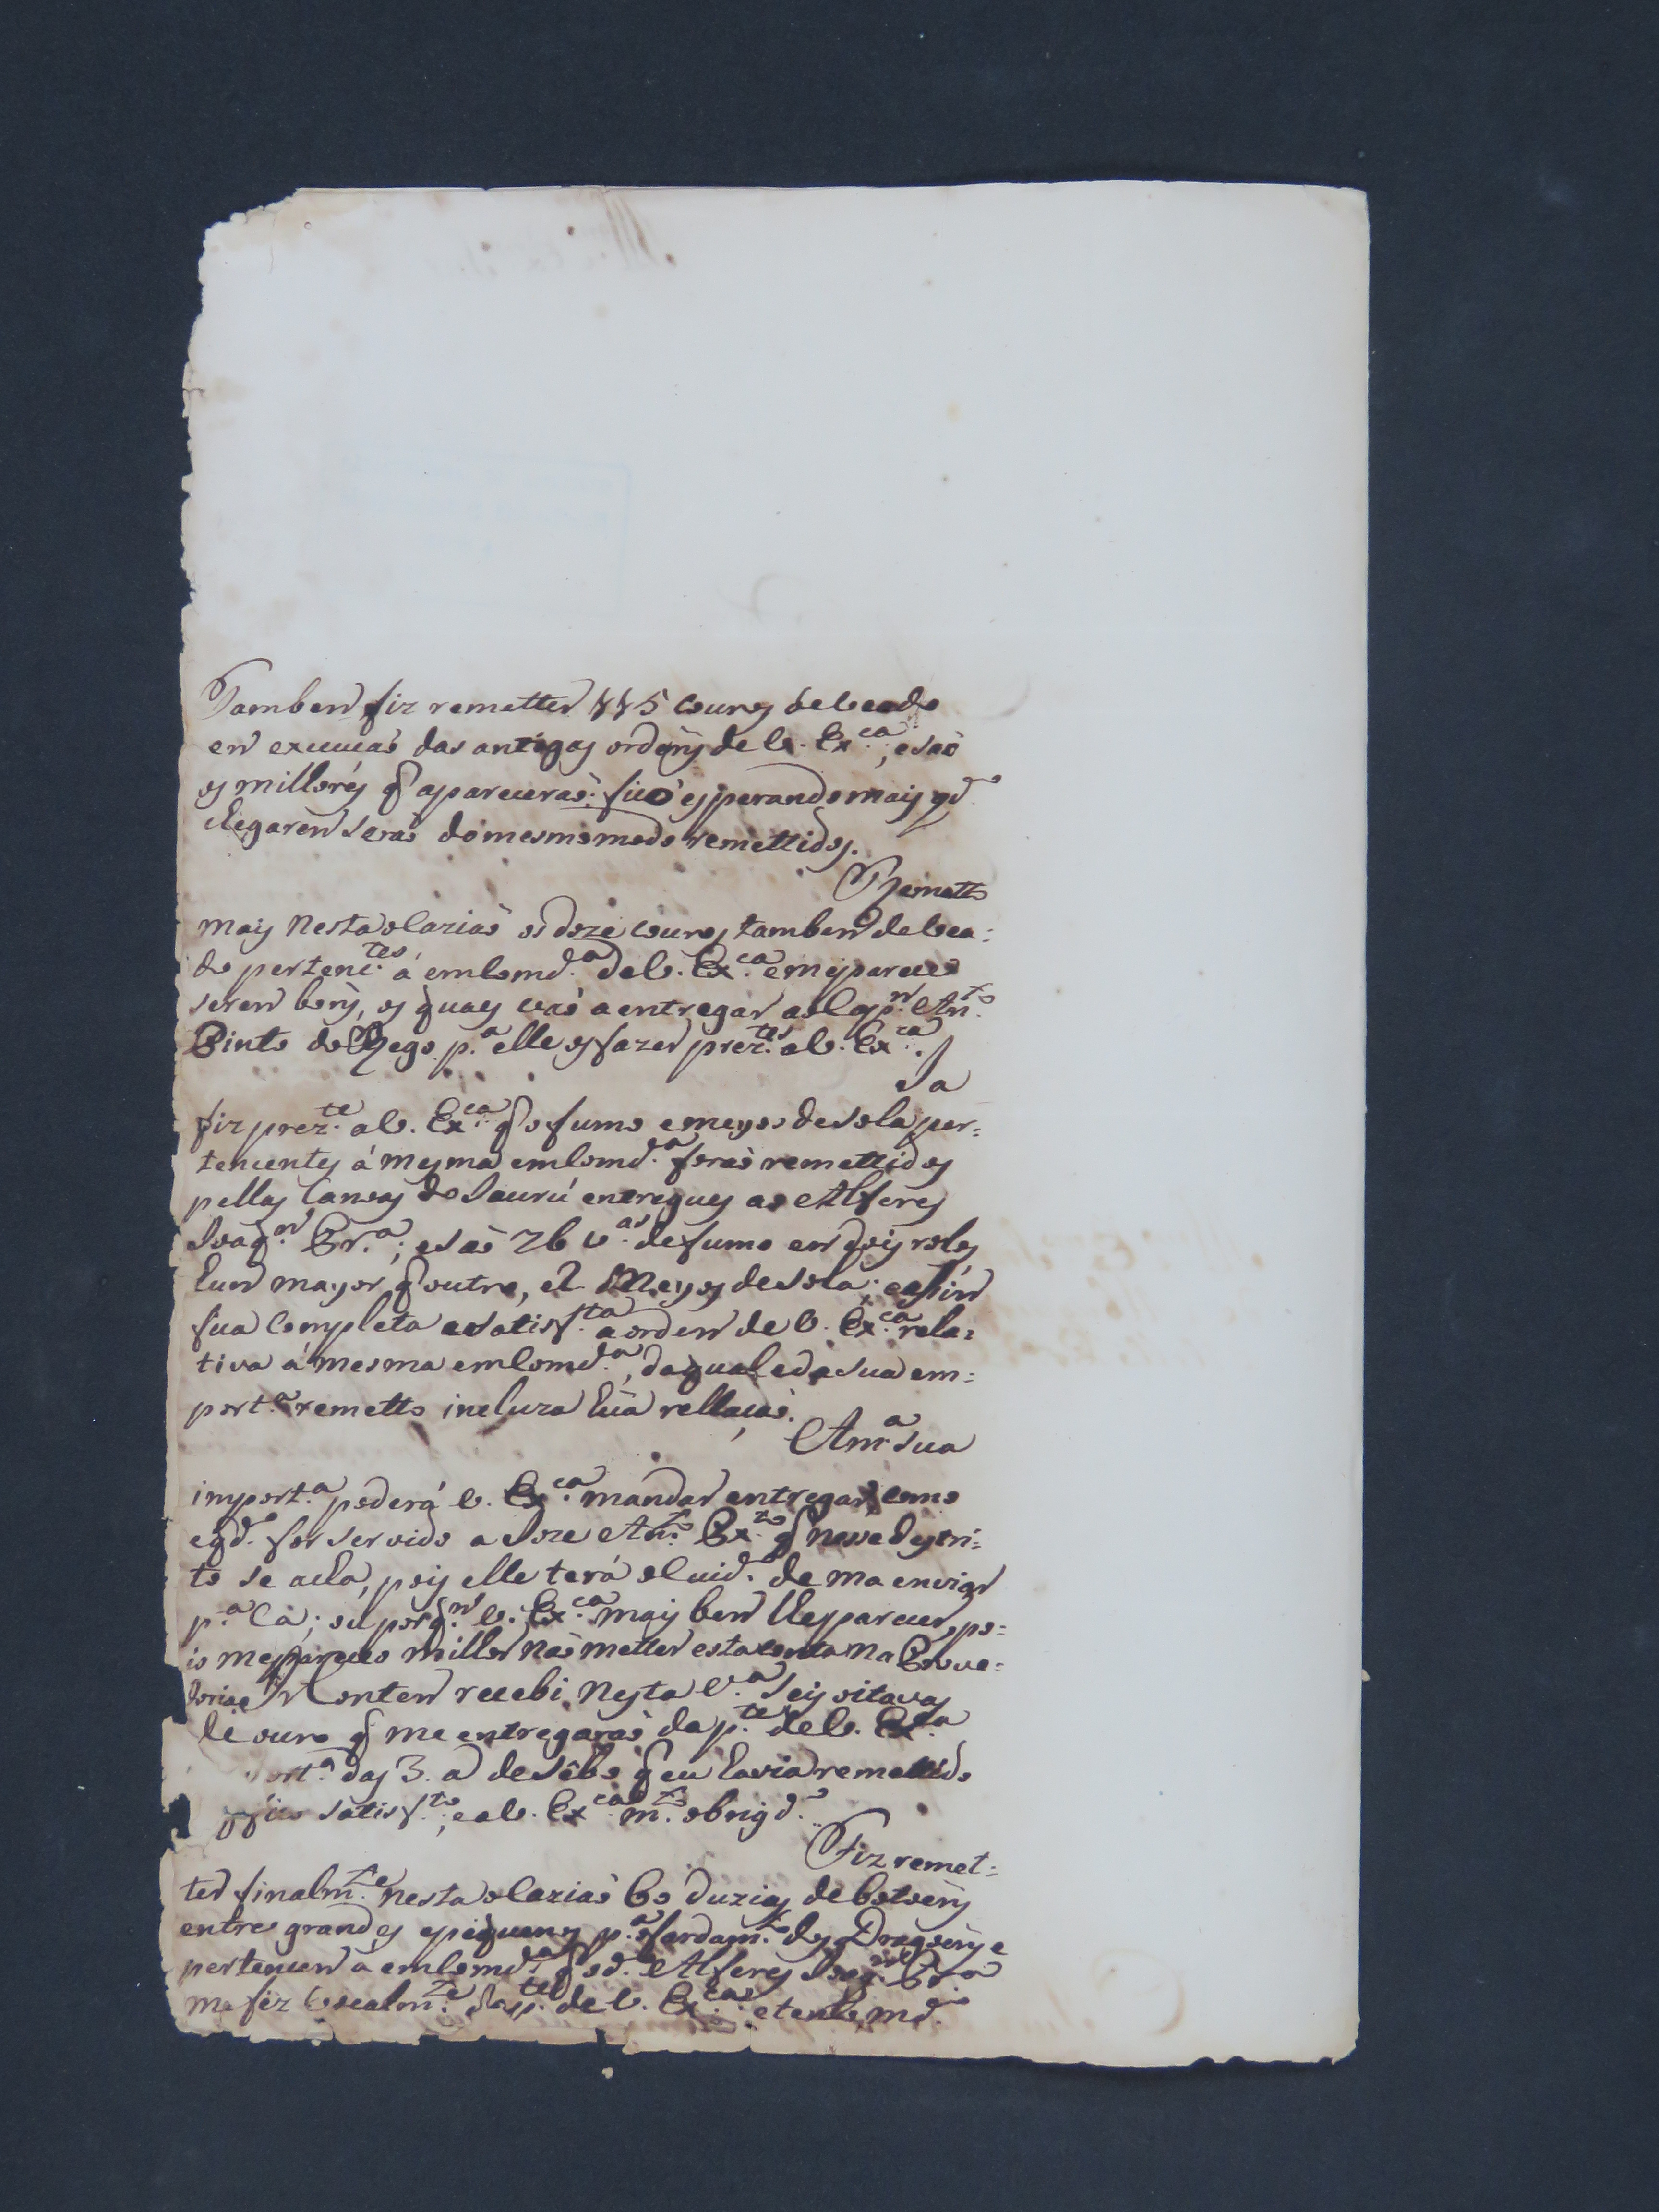 Tambem fiz remetter 115 couros de veado
em execucaõ das antigas ordẽns de V. Ex.ca; e saõ
os milhores q̃ apareceraõ: fico esperando mais e qd.o
chegarem seraõ do mesmo modo remettidos.
Remetto
mais nesta olaziaõ os doze couros tambem de vea=
do pertenc.tes á emcomd.a de V. Ex.ca e mepareceo
serem bons, os quaes vaõ a entregar ao Cap.m Ant.o
Pinto do Rego p.a elle os fazer prez.tes a V. Ex.ca.
Ja
fiz prez.te a V. Ex.ca q̃ o fumo e meyos de sola per=
tencentes á mesma emcomd.a foraõ remettidos
pellas Canoas do Jaurú entregues ao Alferes
Joaq.m Pr.a; e saõ 26 v.as de fumo em dois rolos
hum mayor q̃ outro, e 2 Meyos de sola; e assim
fica completa e satisf.ta a ordem de V. Ex.ca rela=
tiva á mesma emcomd.a, da qual e da sua em=
port.a remetto incluza hũa rellacaõ.
A m.a sua
import.a poderá V. Ex.ca mandar entregar como
e qd.o for servido a Joze Ant.o Px.to q̃ nesse destri=
to se acha, pois elle terá o cuid.o de ma enviar
p.a Cá; ou por q.m V. Ex.ca mais bem lhe parecer, po=
is me pareceo milhor naõ metter esta conta na Prove=
doria e Hontem recebi nesta V.a seis oitavas
de ouro q̃ me entregaraõ da p.te de V. Ex.ca
port.a das 3. a de sebo q̃ eu havia remettido
q̃ fico satisf.to, e a V. Ex.ca m.to obrigd.o
Fiz remet=
ter finalm.te nesta olaziaõ 60 duzias de botoẽns
entre grandes e piquenos p.a o fardam.to dos Dragoẽns e
pertencem a emcomd.a q̃ o d.o Alferes Joaq.m Pr.a
me fez vocalm.te da p.te de V. Ex.ca: e tenho md.o